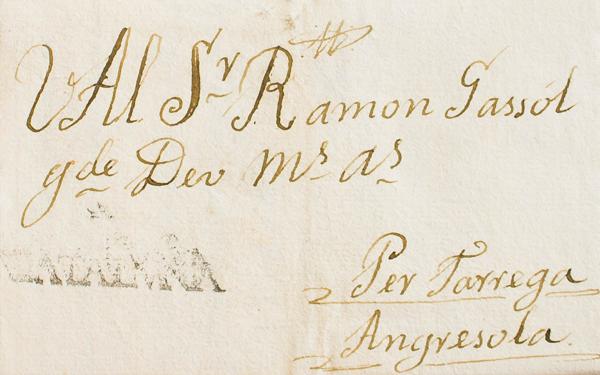 Al Sr Ramon Gassól
gde Dev ms as
Per Tarrega
Angresola